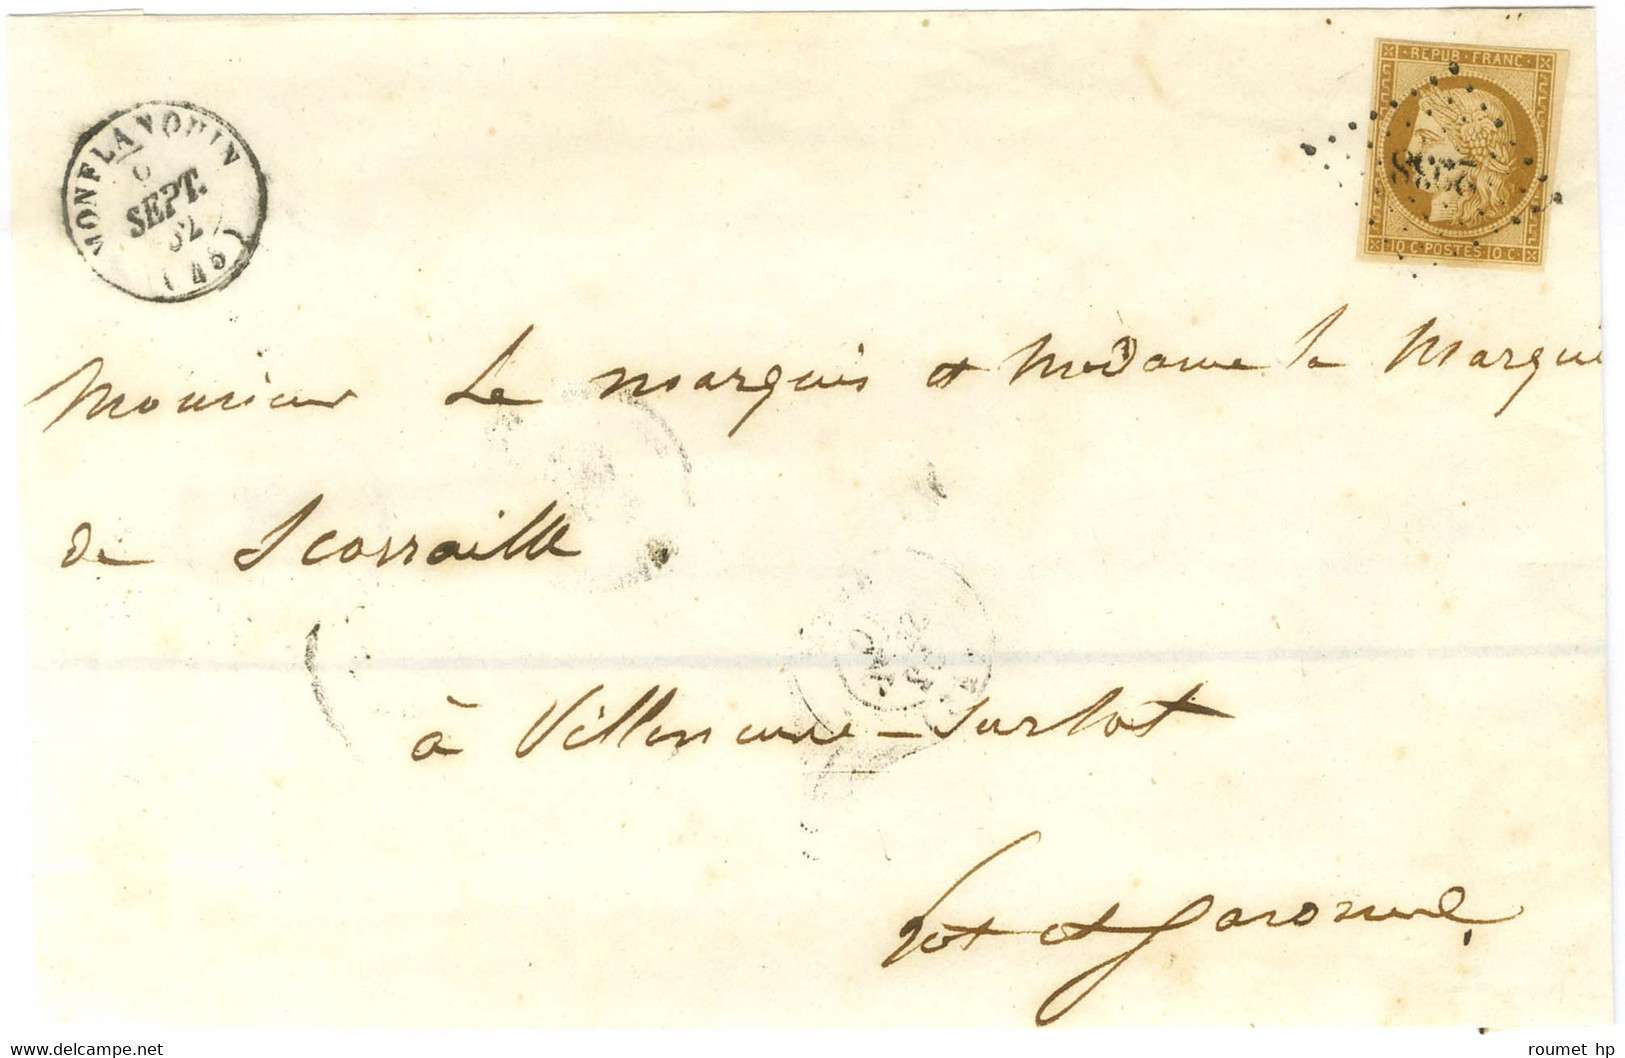 MONFLANQUIN
6
SEPT.
52
(45)
REPUB · FRANC ·
10 C · POSTES · 10 C ·
Monsieur Le Marquis et Madame la Marqui
de Scorraille
à Villeneuve - sur lot
Lot et Garonne.
delcampe.net
roumet hp